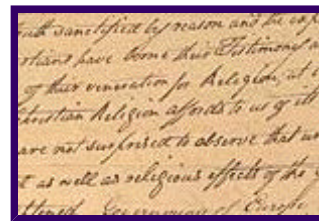 sanctified by reason and the exp
have borne their Testimony a
of their veneration for Religion, at
Christian Religion affords to us of its
are not surprised to observe that un
t as well as religious effects of the
Government of Europe